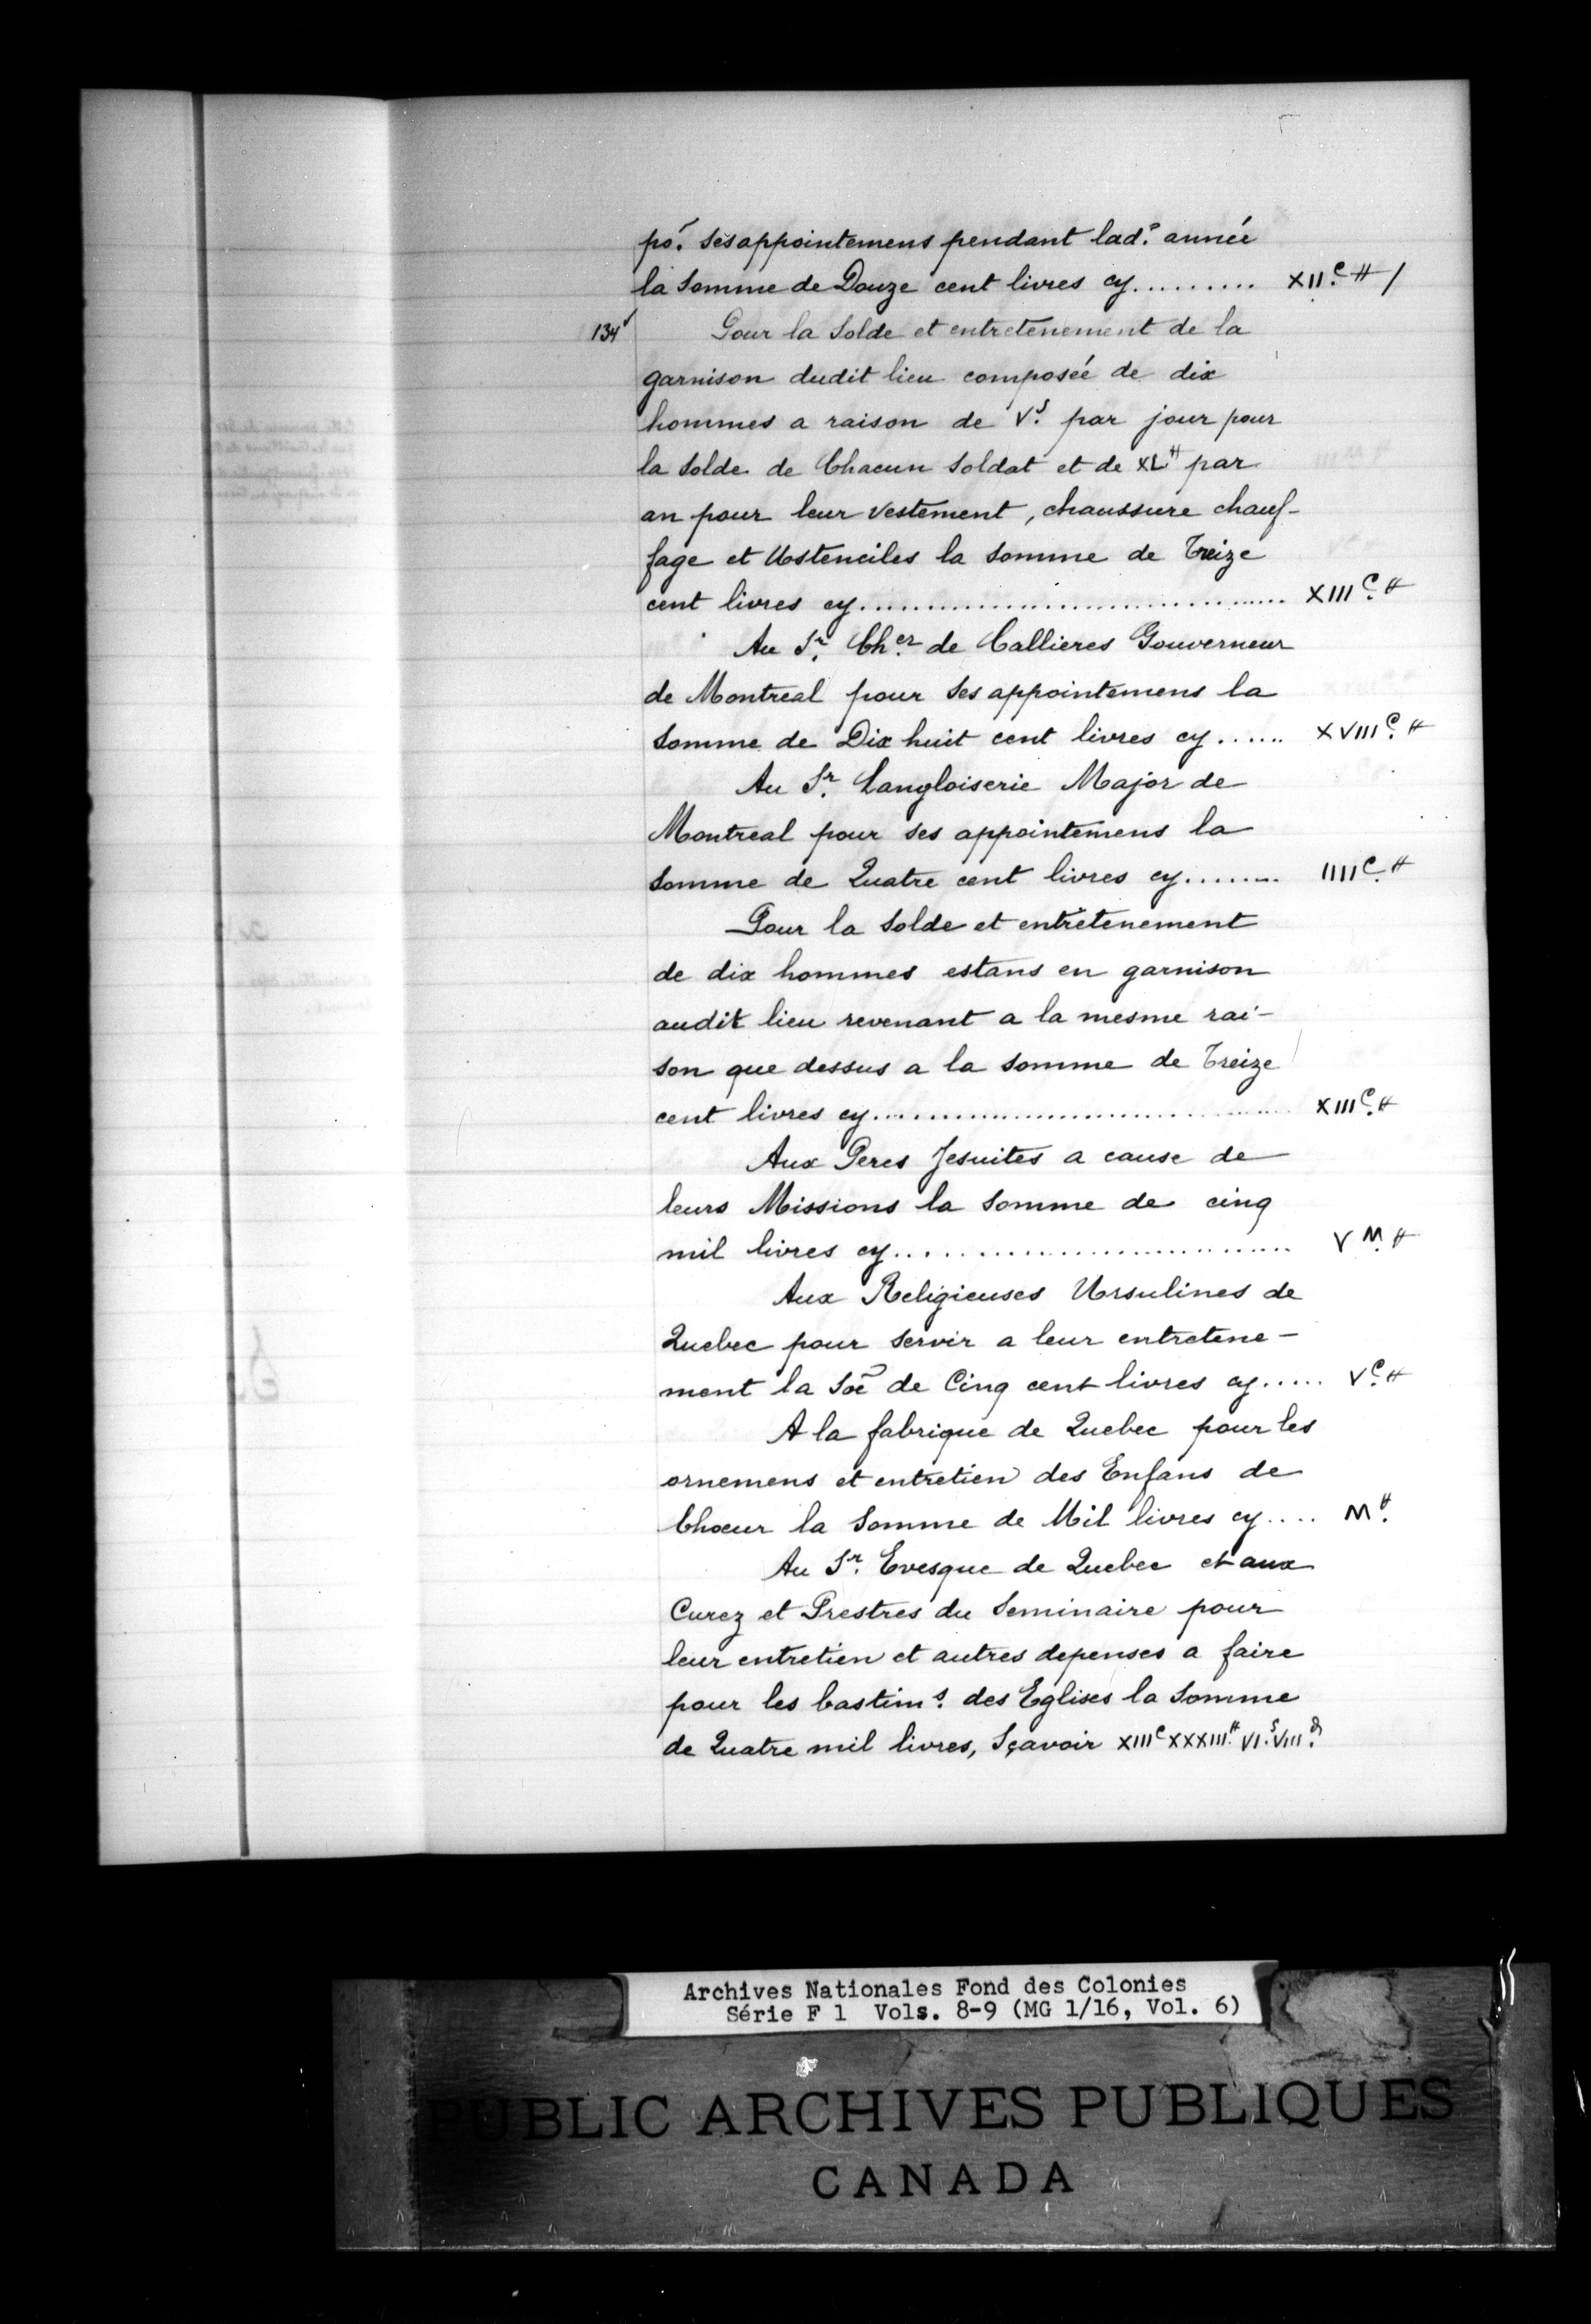 po.r ses appointemens pendant lad.e année
la Somme de Douze cent livres cy......... XII.C ₶ /
134v Pour la Solde et entretenement de la
garnison dudit lieu composée de dix
hommes a raison de V.s par jour pour
la Solde de Chacun Soldat et de XL₶ par
an pour leur vestement, chaussure chauf-
fage et Ustenciles la Somme de Treize
cent livres cy.............................. XIII.C ₶
Au S.r Ch.er de Callieres Gouverneur
de Montreal pour Ses appointemens la
Somme de Dix huit cent livres cy...... XVIII.C ₶
Au S.r Langloiserie Major de
Montreal pour ses appointemens la
Somme de Quatre cent livres cy........ IIII.C ₶
Pour la Solde et entretenement
de dix hommes estans en garnison
audit lieu revenant a la mesme rai-
son que dessus a la Somme de Treize
cent livres cy.............................. XIII.C ₶
Aux Peres Jesuites a cause de
leurs Missions la Somme de cinq
mil livres cy............................ V.M ₶
Aux Religieuses Ursulines de
Quebec pour Servir a leur entretene-
ment la Soẽ de Cinq cent livres cy..... V.C ₶
A la fabrique de Quebec pour les
ornemens et entretien des Enfans de
Choeur la Somme de Mil livres cy.... M.₶
Au S.r Evesque de Quebec et aux
Curez et Prestres du Seminaire pour
leur entretien et autres depenses a faire
pour les bastim.s des Eglises la Somme
de Quatre mil livres, Sçavoir XIIIC XXXIII.₶ VI.s VIII.d
Archives Nationales Fond des Colonies
Série F 1 Vols. 8-9 (MG 1/16, Vol. 6)
PUBLIC ARCHIVES PUBLIQUES
CANADA